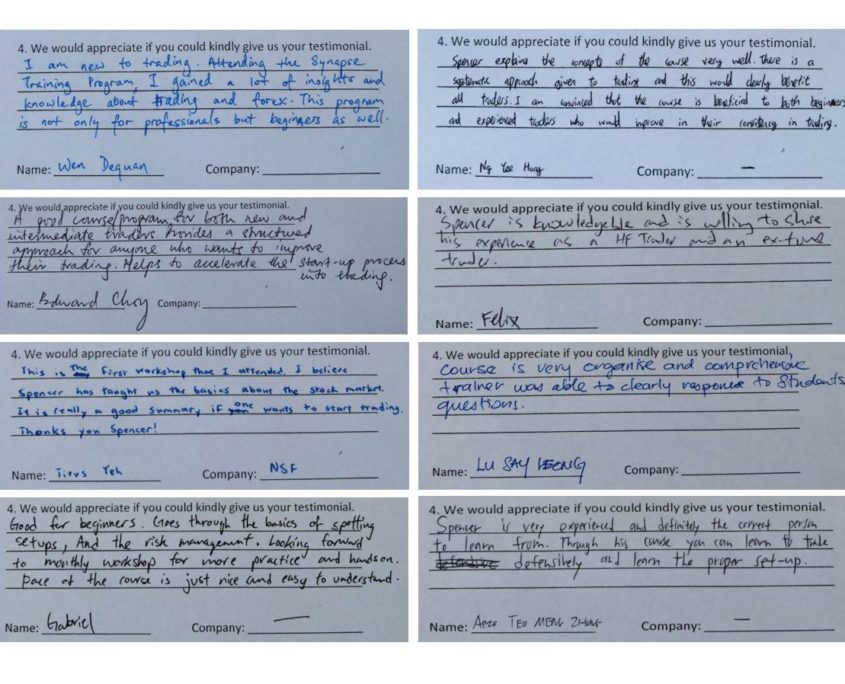 4. We would appreciate if you could kindly give us your testimonial.
I am new to trading. Attending the Synapse
Training Program, I gained a lot of insights and
knowledge about trading and forex. This program
is not only for professionals but beginners as well.
Name: Wen Dequan Company:
4. We would appreciate if you could kindly give us your testimonial.
Spencer explains the concepts of the course very well. There is a
systematic approach given to trading and this would clearly benefit
all traders. I am convinced that the course is beneficial to both beginners
and experienced traders who would improve in their consistency in trading.
Name: Ng Yee Hong Company: —
4. We would appreciate if you could kindly give us your testimonial.
A good course/program for both new and
intermediate traders. Provides a structured
approach for anyone who wants to improve
their trading. Helps to accelerate the start-up process
into trading.
Name: Edward Choy Company:
4. We would appreciate if you could kindly give us your testimonial.
Spencer is knowledgeble and is willing to share
his experience as a HF Trader and an ex-fund
trader.
Name: Felix Company:
4. We would appreciate if you could kindly give us your testimonial.
This is the first workshop that I attended. I believe
Spencer has taught us the basics about the stock market.
It is really a good summary if one wants to start trading.
Thanks you Spencer!
Name: Titus Yeh Company: NSF
4. We would appreciate if you could kindly give us your testimonial,
course is very organise and comprehensive
trainer was able to clearly response to students
questions.
Name: LU SAY LEONG Company:
4. We would appreciate if you could kindly give us your testimonial.
Good for beginners. Goes through the basics of spotting
setups, And the risk management. Looking forward
to monthly workshop for more practice and handson.
Pace of the course is just nice and easy to understand.
Name: Gabriel Company: —
4. We would appreciate if you could kindly give us your testimonial.
Spencer is very experienced and definitely the correct person
to learn from. Through his course you can learn to trade
defensively and learn the proper set-up.
Name: TEO MENG ZHONG Company: —